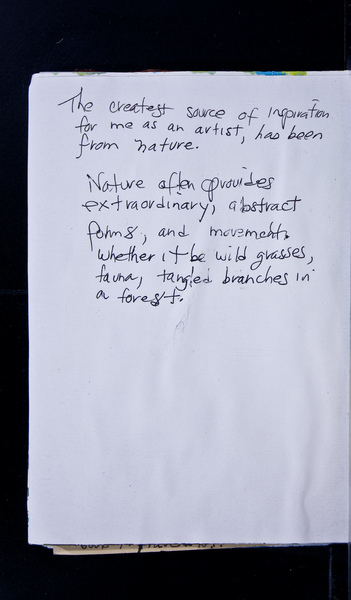 The greatest source of inspiration
for me as an artist, has been
from nature.
Nature often provides
extraordinary, abstract
forms, and movement,
whether it be wild grasses,
fauna, tangled branches in
a forest.